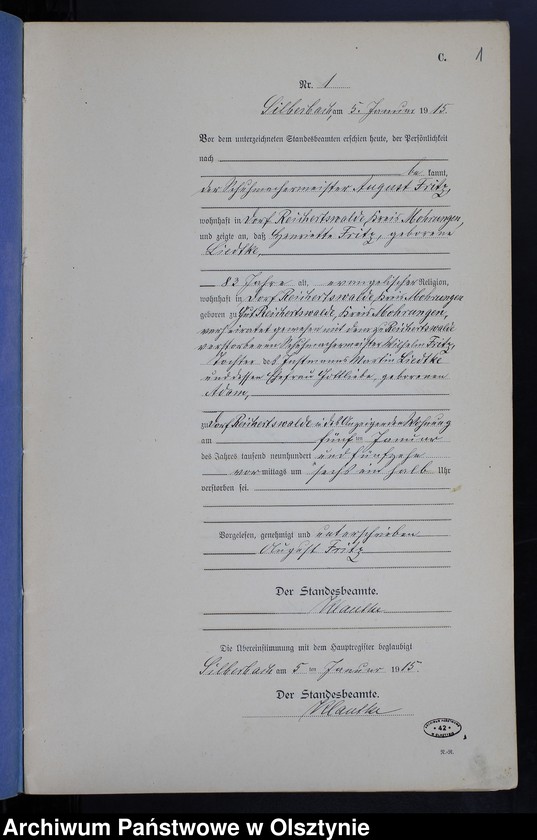 C. 1
Nr. 1
Silberbach, am 5. Januar 1915.
Vor dem unterzeichneten Standesbeamten erschien heute, der Persönlichkeit
nach
be kannt,
der Schuhmachermeister August Fritz,
wohnhaft in Dorf Reichertswalde, Kreis Mohrungen,
und zeigte an, daß Henriette Fritz, geborene
Liedtke,
82 Jahre alt, evangelischer Religion,
wohnhaft in Dorf Reichertswalde, Kreis Mohrungen
geboren zu Gut Reichertswalde, Kreis Mohrungen,
verheiratet gewesen mit dem zu Reichertswalde
verstorbenen Schuhmachermeister Wilhelm Fritz,
Tochter des Instmanns Martin Liedtke
und dessen Ehefrau Gottliebe, geborenen
Adam,
zu Dorf Reichertswalde in des Anzeigenden Wohnung
am fünf ten Januar
des Jahres tausend neunhundert und fünfzehn
vor mittags um sechs ein halb Uhr
verstorben sei.
Vorgelesen, genehmigt und unterschrieben
August Fritz
Der Standesbeamte.
Die Übereinstimmung mit dem Hauptregister beglaubigt
Silberbach am 5 ten Januar 1915.
Der Standesbeamte.
* 42 *
N.-N.
Archiwum Państwowe w Olsztynie